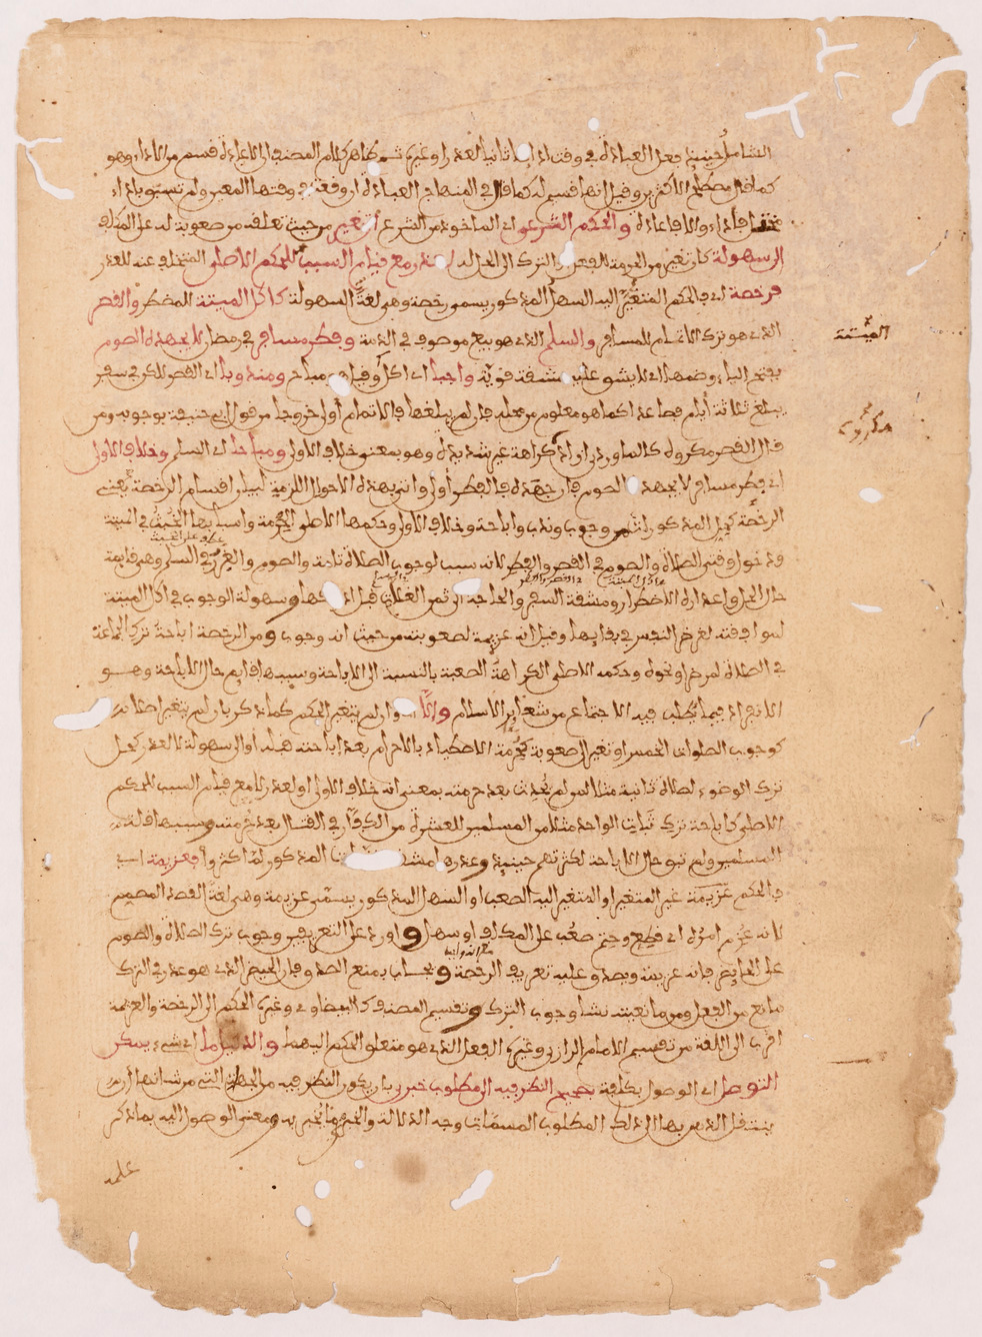 الشامل حينئذ فعل العبادة في وقت ادائها ثانيا لعذر او غيره ثم ظاهر كلام المصنف ان الاعادة قسم من الاداء وهو
كما قال مصطلح الاكثر وقيل انها قسيم له كما قال في المنهاج العبادة ان وقعت في وقتها المعين ولم تسبق باداء
مختل فأداء والا فاعادة والحكم الشرعي اي الماخوذ من الشرع ان تغير من حيث تعلقه من صعوبة له على المكلف
الى سهولة كان تغير من الحرمة للفعل او الترك الى الحل له لعذر مع قيام السبب للحكم الاصلي المتخلف عنه للعذر
فرخصة اي فالحكم المتغير اليه السهل المذكور يسمى رخصة وهي لغة السهولة كاكل الميتة للمضطر والقصر
الذي هو ترك الاتمام للمسافر والسلم الذي هو بيع موصوف في الذمة وفطر مسافر في رمضان لا يجهده الصوم
بفتح الياء وضمها اي لا يشق عليه مشقة قوية واجبا اي اكل وقيل هو مباح ومندوبا اي القصر لكن في سفر
يبلغ ثلاثة أيام فصاعدا كما هو معلوم من محله فان لم يبلغها فالاتمام أولى خروجا من قول ابي حنيفة بوجوبه ومن
قال القصر مكروه كالماوردي اراد كراهة غير شديدة وهو بمعنى خلاف الاولى ومباحا اي السلم وخلاف الاولى
اي فطر مسافر لا يجهده الصوم فان جهده فالفطر أولى واتى بهذه الاحوال اللازمة لبيان اقسام الرخصة يعني
الرخصة كحل المذكورات من وجوب وندب واباحة وخلاف الاولى وحكمها الاصلي الحرمة واسبابها الخبث في الميتة
ودخول وقتي الصلاة والصوم في القصر والفطر لانه سبب لوجوب الصلاة تامة والصوم والغرر في السلم وهي قائمة
حال الحل واعذاره الاضطرار ومشقة السفر والحاجة الى ثمن الغلات قبل ادراكها وسهولة الوجوب في اكل الميتة
لموافقته لغرض النفس في بقائها وقيل انه عزيمة لصعوبته من حيث انه وجوب ومن الرخصة اباحة ترك الجماعة
في الصلاة لمرض او نحوه وحكمه الاصلي الكراهة الصعبة بالنسبة الى الاباحة وسببها قائم حال الاباحة وهو
الانفراد فيما يطلب فيه الاجتماع من شعائر الاسلام والا اي وان لم يتغير الحكم كما ذكر بان لم يتغير اصلا
كوجوب الصلوات الخمس او تغير الى صعوبة كحرمة الاصطياد بالاحرام بعد اباحته قبله او الى سهولة لا لعذر كحل
ترك الوضوء لصلاة ثانية مثلا لمن لم يحدث بعد حرمته بمعنى انه خلاف الاولى او لعذر لا مع قيام السبب للحكم
الاصلي كاباحة ترك ثبات الواحد مثلا من المسلمين للعشرة من الكفار في القتال بعد حرمته وسببها قلة
المسلمين ولم تبق حال الاباحة لكثرتهم حينئذ وعذرها مشقة الثبات المذكور لما كثروا فعزيمة اي
فالحكم عزيمة غير المتغير او المتغير اليه الصعب او السهل المذكور يسمى عزيمة وهي لغة القصد المصمم
لانه عزم امره اي قطع وحتم صعب على المكلف او سهل واورد على التعريفين وجوب ترك الصلاة والصوم
على الحائض فانه عزيمة ويصدق عليه تعريف الرخصة ويجاب بمنع الصدق فان الحيض الذي هو عذر في الترك
مانع من الفعل ومن مانعيته نشأ وجوب الترك وتقسيم المصنف كالبيضاوي وغيره الحكم الى الرخصة والعزيمة
اقرب الى اللغة من تقسيم الامام الرازي وغيره الفعل الذي هو متعلق الحكم اليهما والدليل ما اي شيء يمكن
التوصل اي الوصول بكلفة بصحيح النظر فيه الى مطلوب خبري بان يكون النظر فيه من الجهة التي من شانها ان
ينتقل الذهن بها الى ذلك المطلوب المسمات وجه الدلالة والخبري ما يخبر به ومعنى الوصول اليه بما ذكر
علمه
الميتة